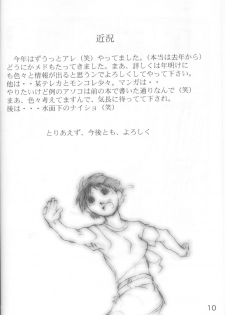 近況
今年はずうっとアレ（笑）やってました。（本当は去年から）
どうにかメドもたってきました。まあ、詳しくは年明けに
も色々と情報が出ると思うンでよろしくしてやって下さい。
他は・・某テレカとモンコレタタ。マンガは・・・
やりたいけど例のアソコは前の本で書いた通りなんで（笑）
まあ、色々考えてますんで、気長に待ってて下され。
後は・・・水面下のナイショ（笑）
とりあえず、今後とも、よろしく
10